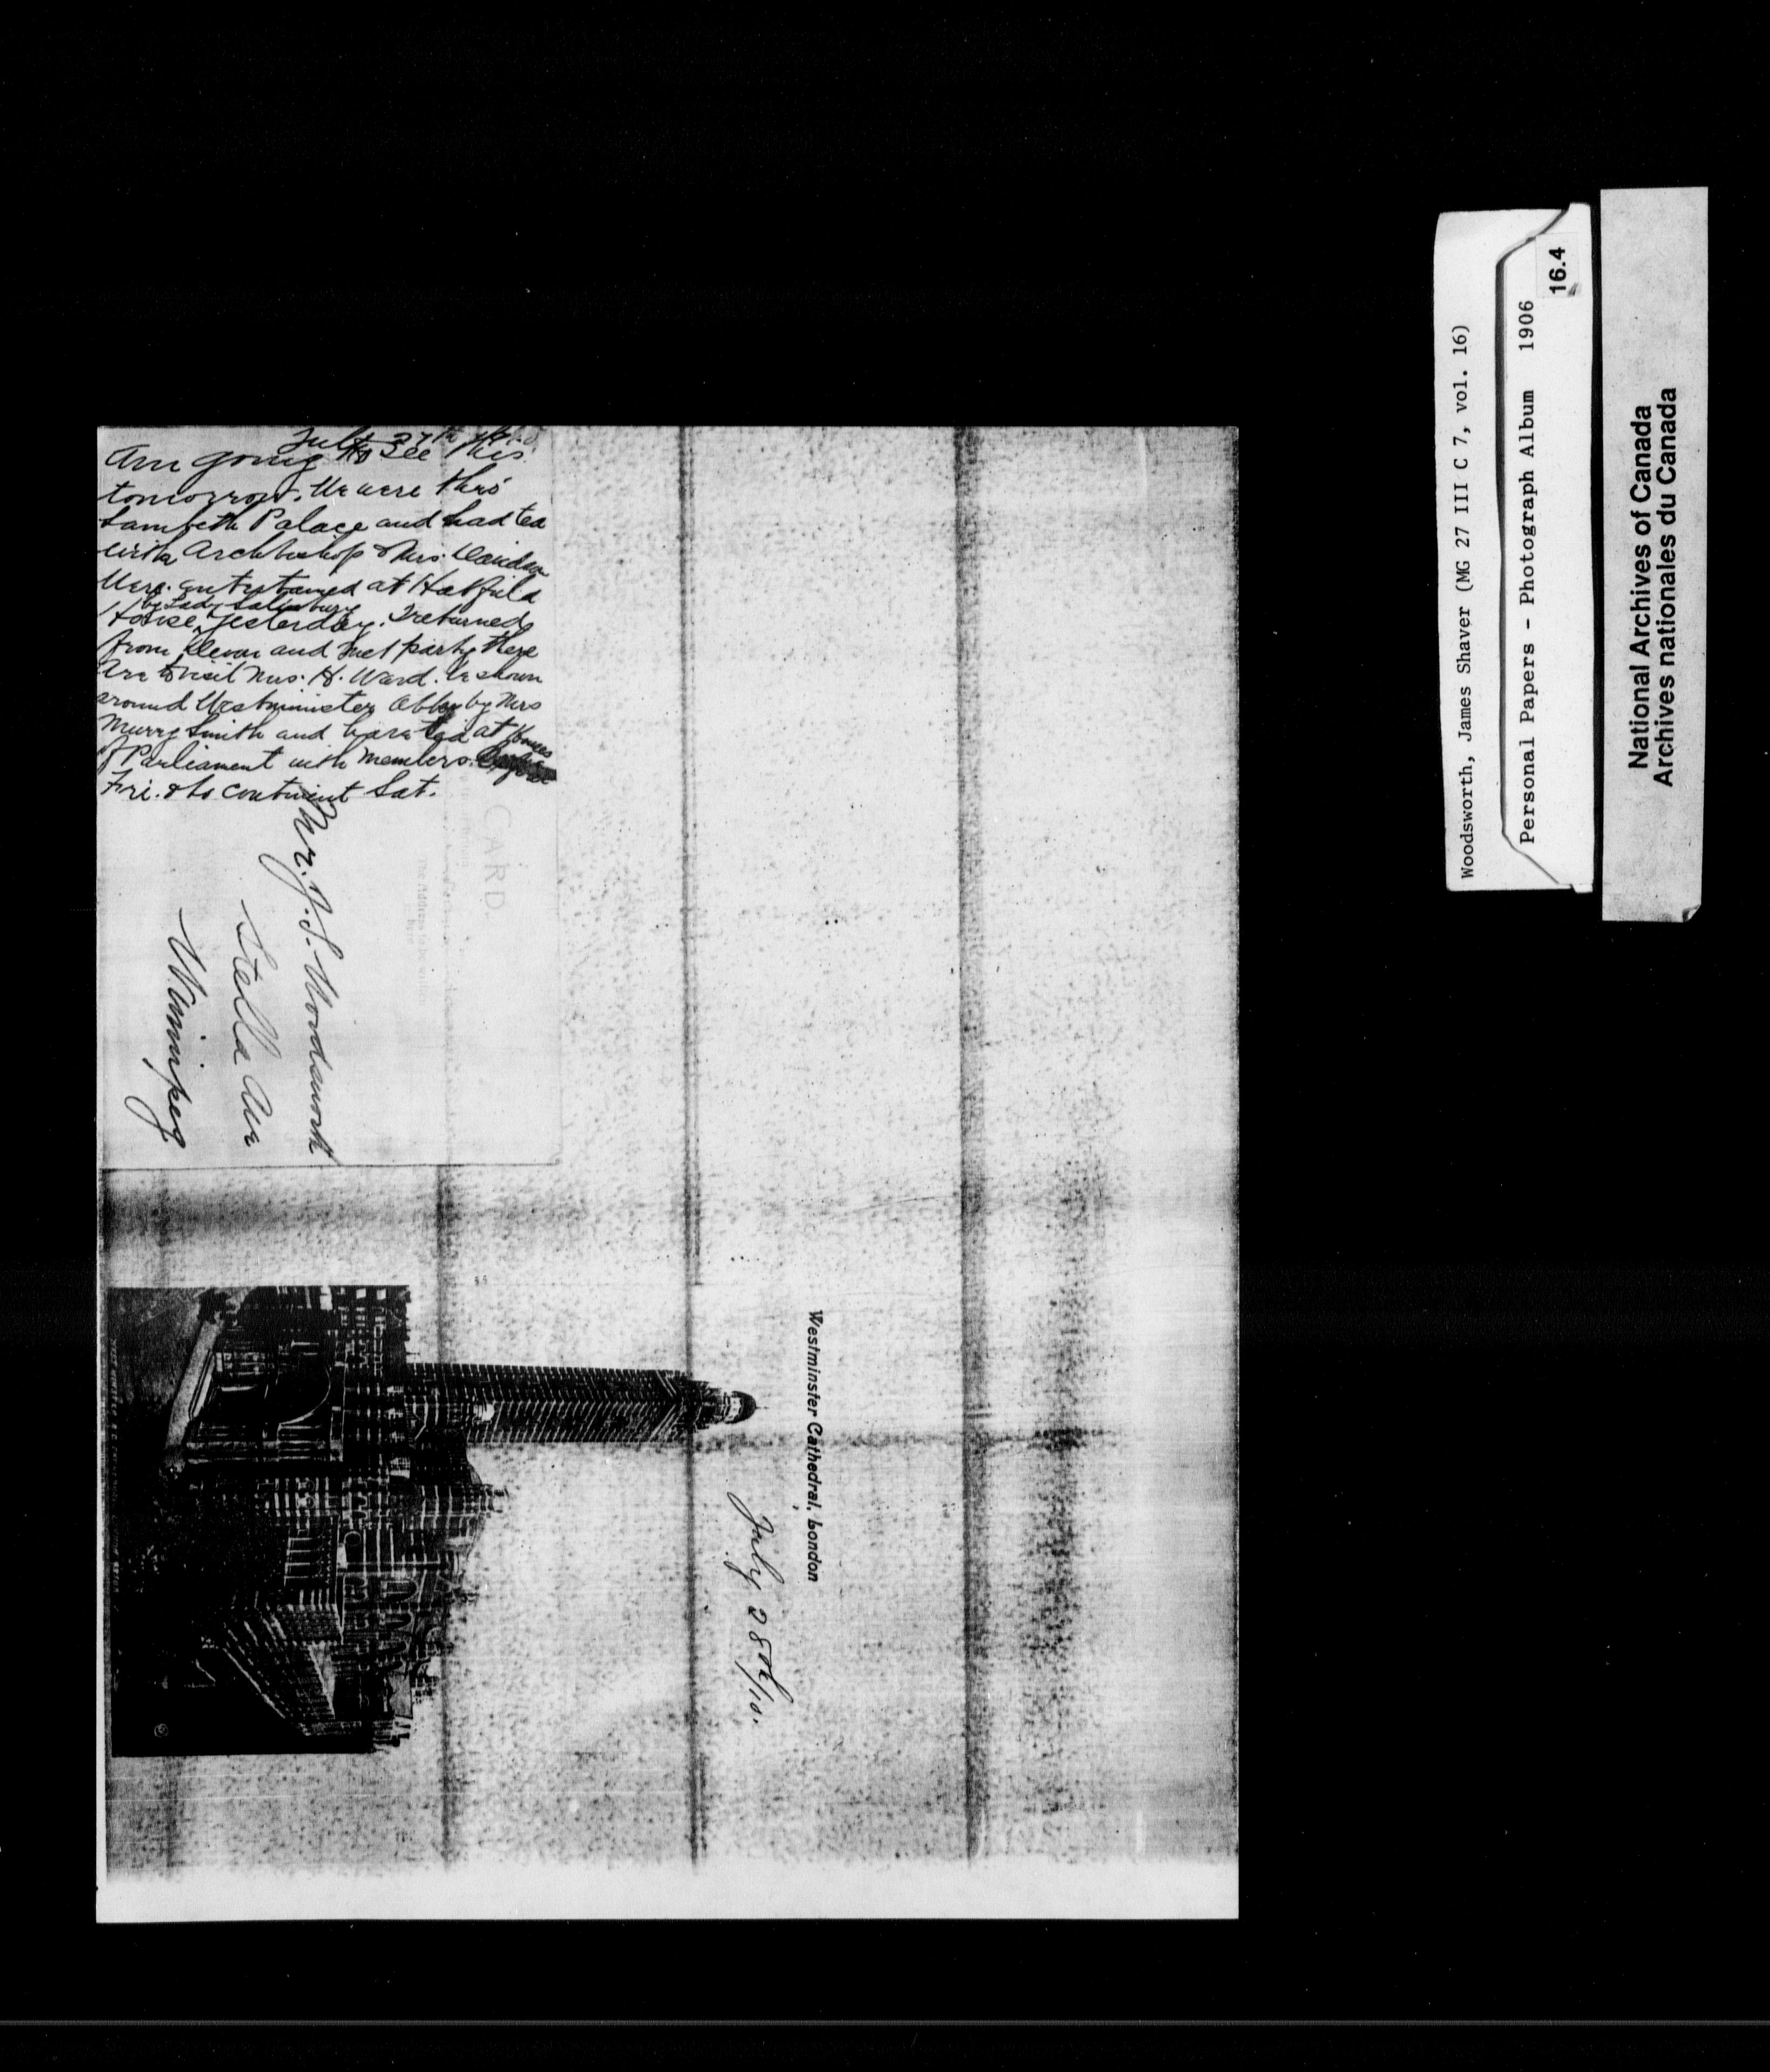 July 27th
Am going to see this
tomorrow. We were thro'
Lambeth Palace and had tea
with Archbishop & Mrs. Davidson
Were entertained at Hatfield
by Lady Salisbury
House yesterday. I returned
from Devon and met party there
Are to visit Mrs. H. Ward. be shown
around Westminster Abbey by Mrs
Murry Smith and have tea at Houses
of Parliament with members.
Fri. & to continent Sat.
CARD.
The Address to be
Mr. J. S. Woodsworth
Stella Ave
Winnipeg
Westminster Cathedral, London
July 28th/10.
Woodsworth, James Shaver (MG 27 III C 7, vol. 16)
Personal Papers - Photograph Album 1906
16.4
National Archives of Canada
Archives nationales du Canada